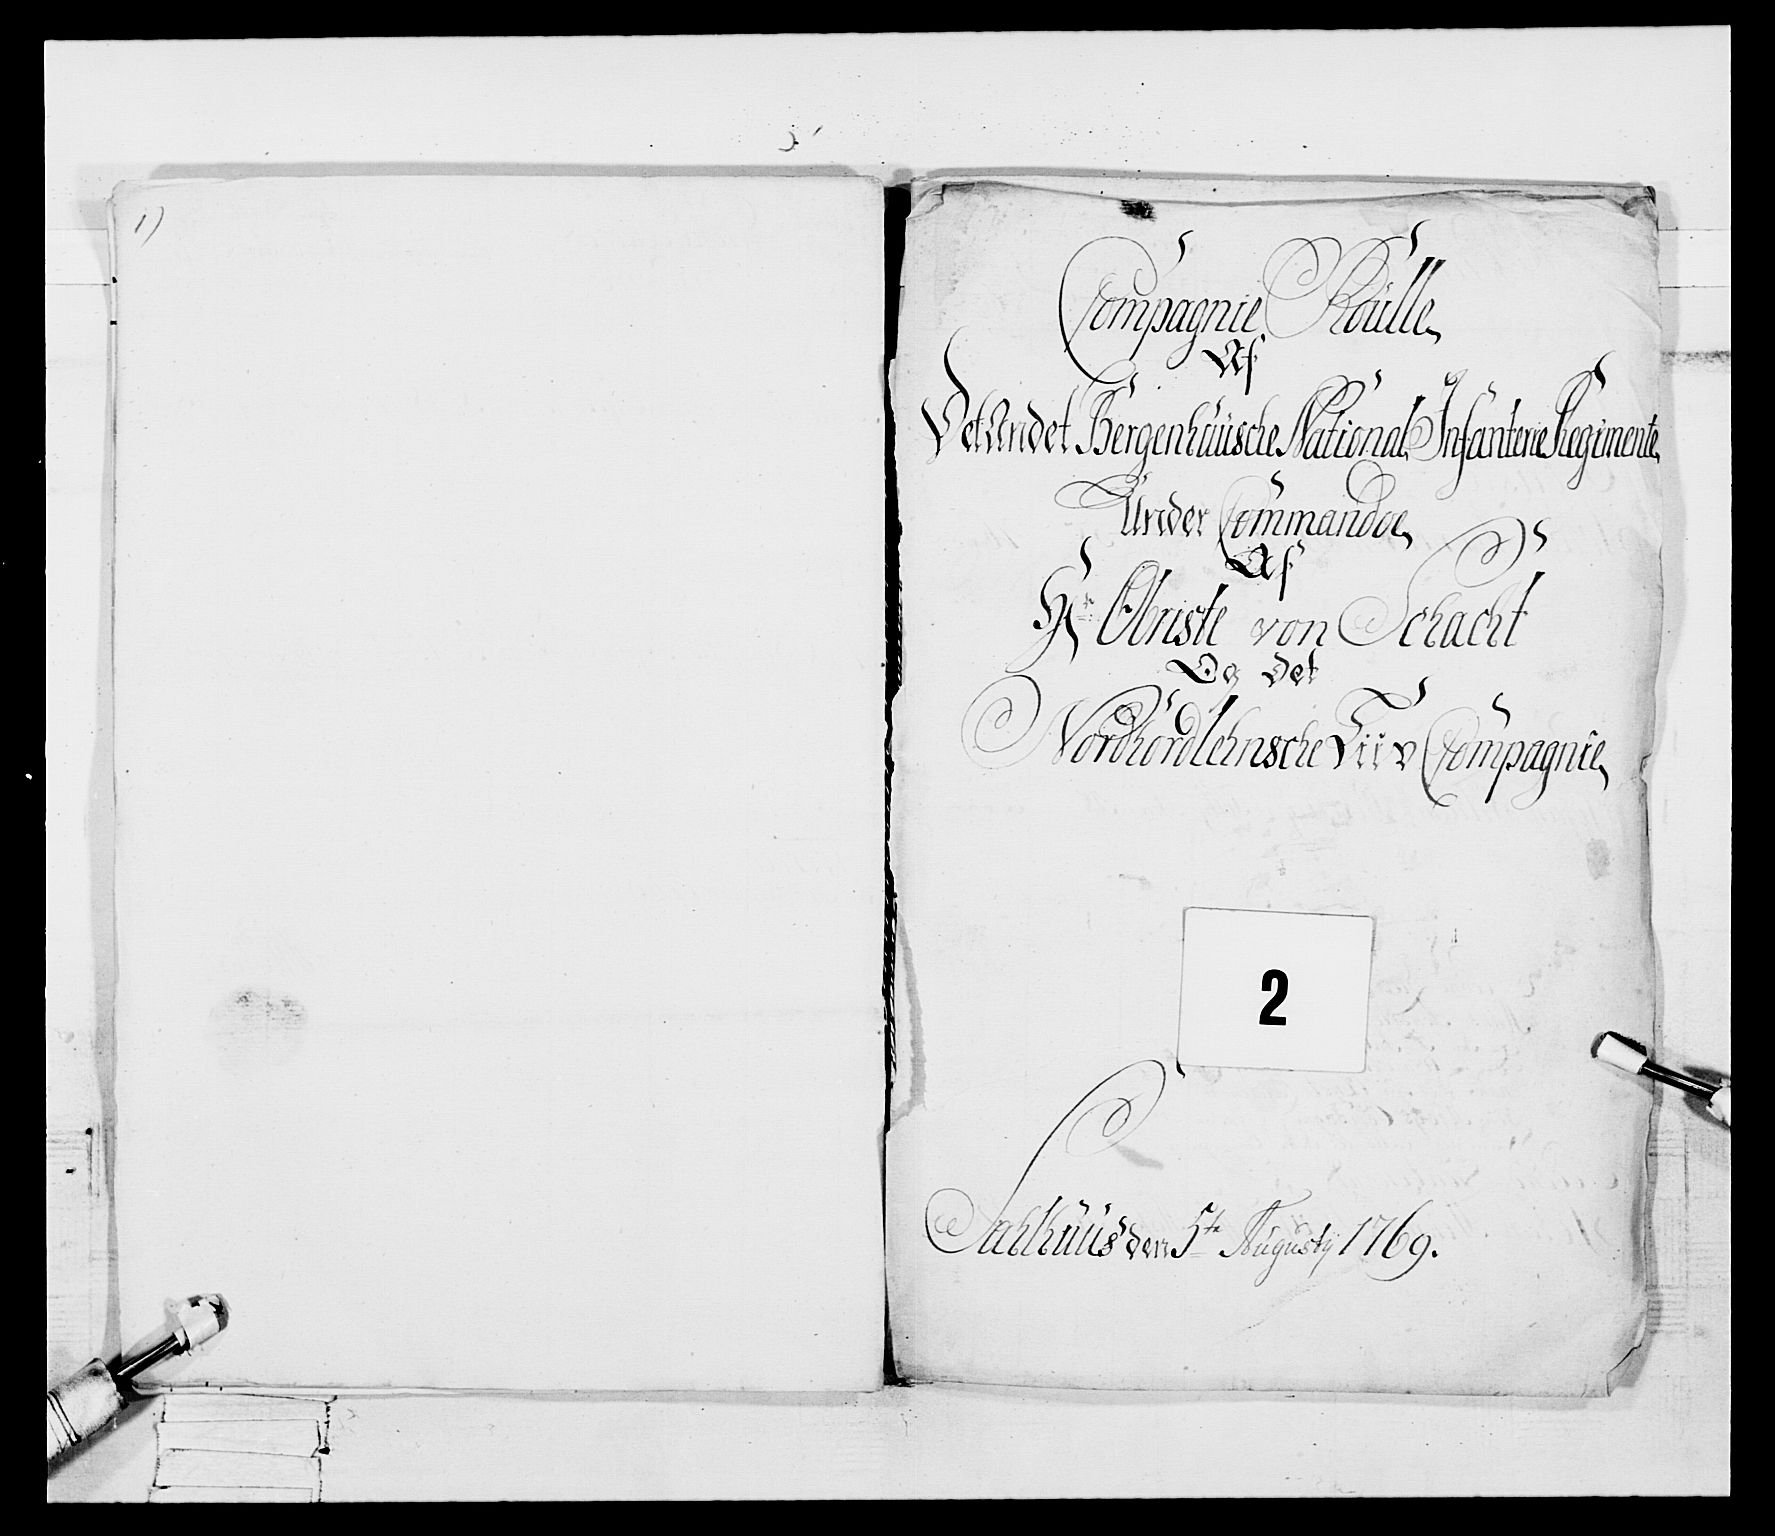 1)
Compagnie Roülle,
Af
Det Andet Bergenhüüsche National Infanterie Regimente,
Under Commandoe,
Af
Hr Obriste von Schacht
Og Det
Nordhordlehnsche Liiv Compagnie,
2
Sahlhüüs den 5te Augusty 1769.